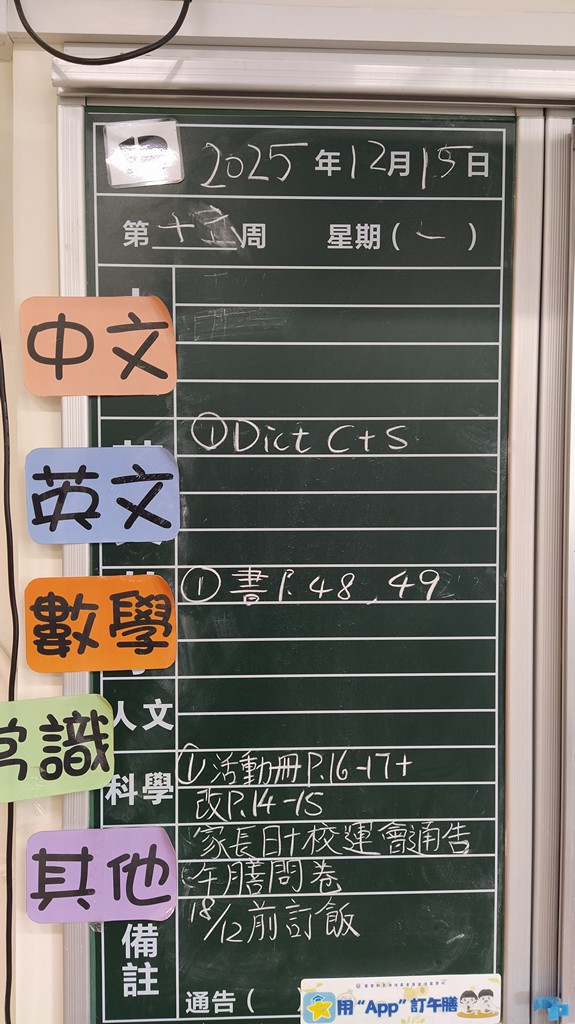 2025年12月15日
第十五周 星期(一)
中文
英文
①Dict C+S
數學
①書P.48,49
人文
常識
科學
①活動冊P.16-17+
改P.14-15
其他
家長日+校運會通告
午膳問卷
備註
18/12前訂飯
通告(
用“App”訂午膳